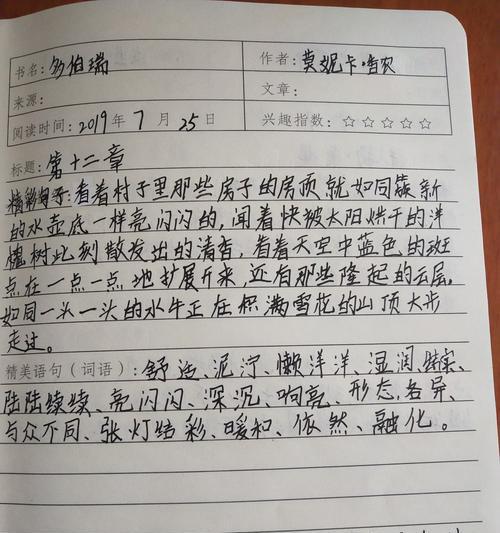 书名: 多伯瑞 作者: 莫妮卡·哈农
来源: 文章:
阅读时间: 2019 年 7 月 25 日 兴趣指数: ☆☆☆☆☆
标题: 第十二章
看着村子里那些房子的房顶就如同簇新
的水壶底一样亮闪闪的,闻着快被太阳烘干的洋
槐树此刻散发出的清香,看着天空中蓝色的斑
点在一点一点地扩展开来,还有那些隆起的云层。
如同一头一头的水牛正在积满雪花的山顶大步
走过。
精美语句(词语): 舒适、泥泞、懒洋洋、湿润、结实、
陆陆续续、亮闪闪、深沉、响亮、形态各异、
与众不同、张灯结彩、暖和、依然、融化。